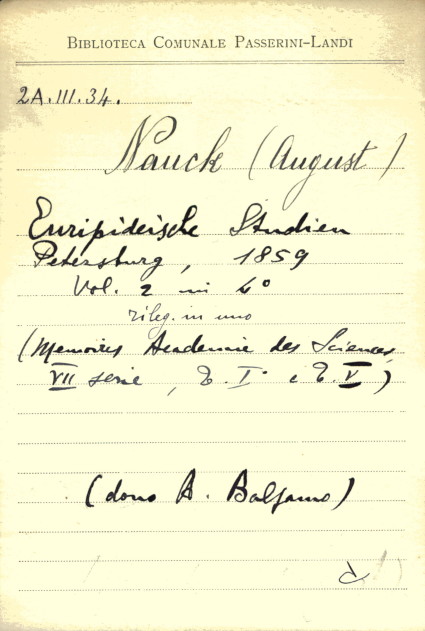 BIBLIOTECA COMUNALE PASSERINI-LANDI
2A.III.34.
Nauck (August)
Euripideische Studien
Petersburg, 1859
Vol. 2 in 4°
rileg. in uno
(Memoires Academie des Sciences,
VII serie, T. I° e T. V)
(dono A. Balsamo)